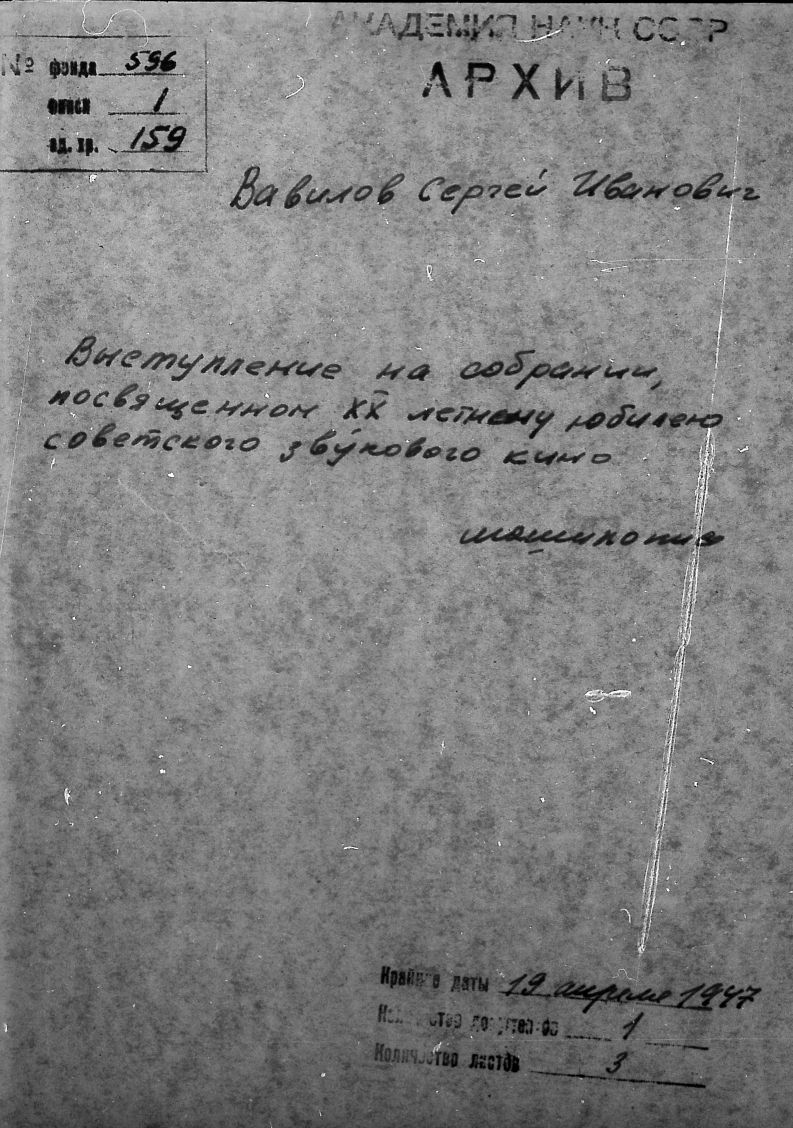 АКАДЕМИЯ НАУК СССР
АРХИВ
№ фонда 596
описи 1
ед. хр. 159
Вавилов Сергей Иванович
Выступление на собрании,
посвященном XX летнему юбилею
советского звукового кино
машинопись
Крайние даты 19 апреля 1947
Количество документов 1
Количество листов 3